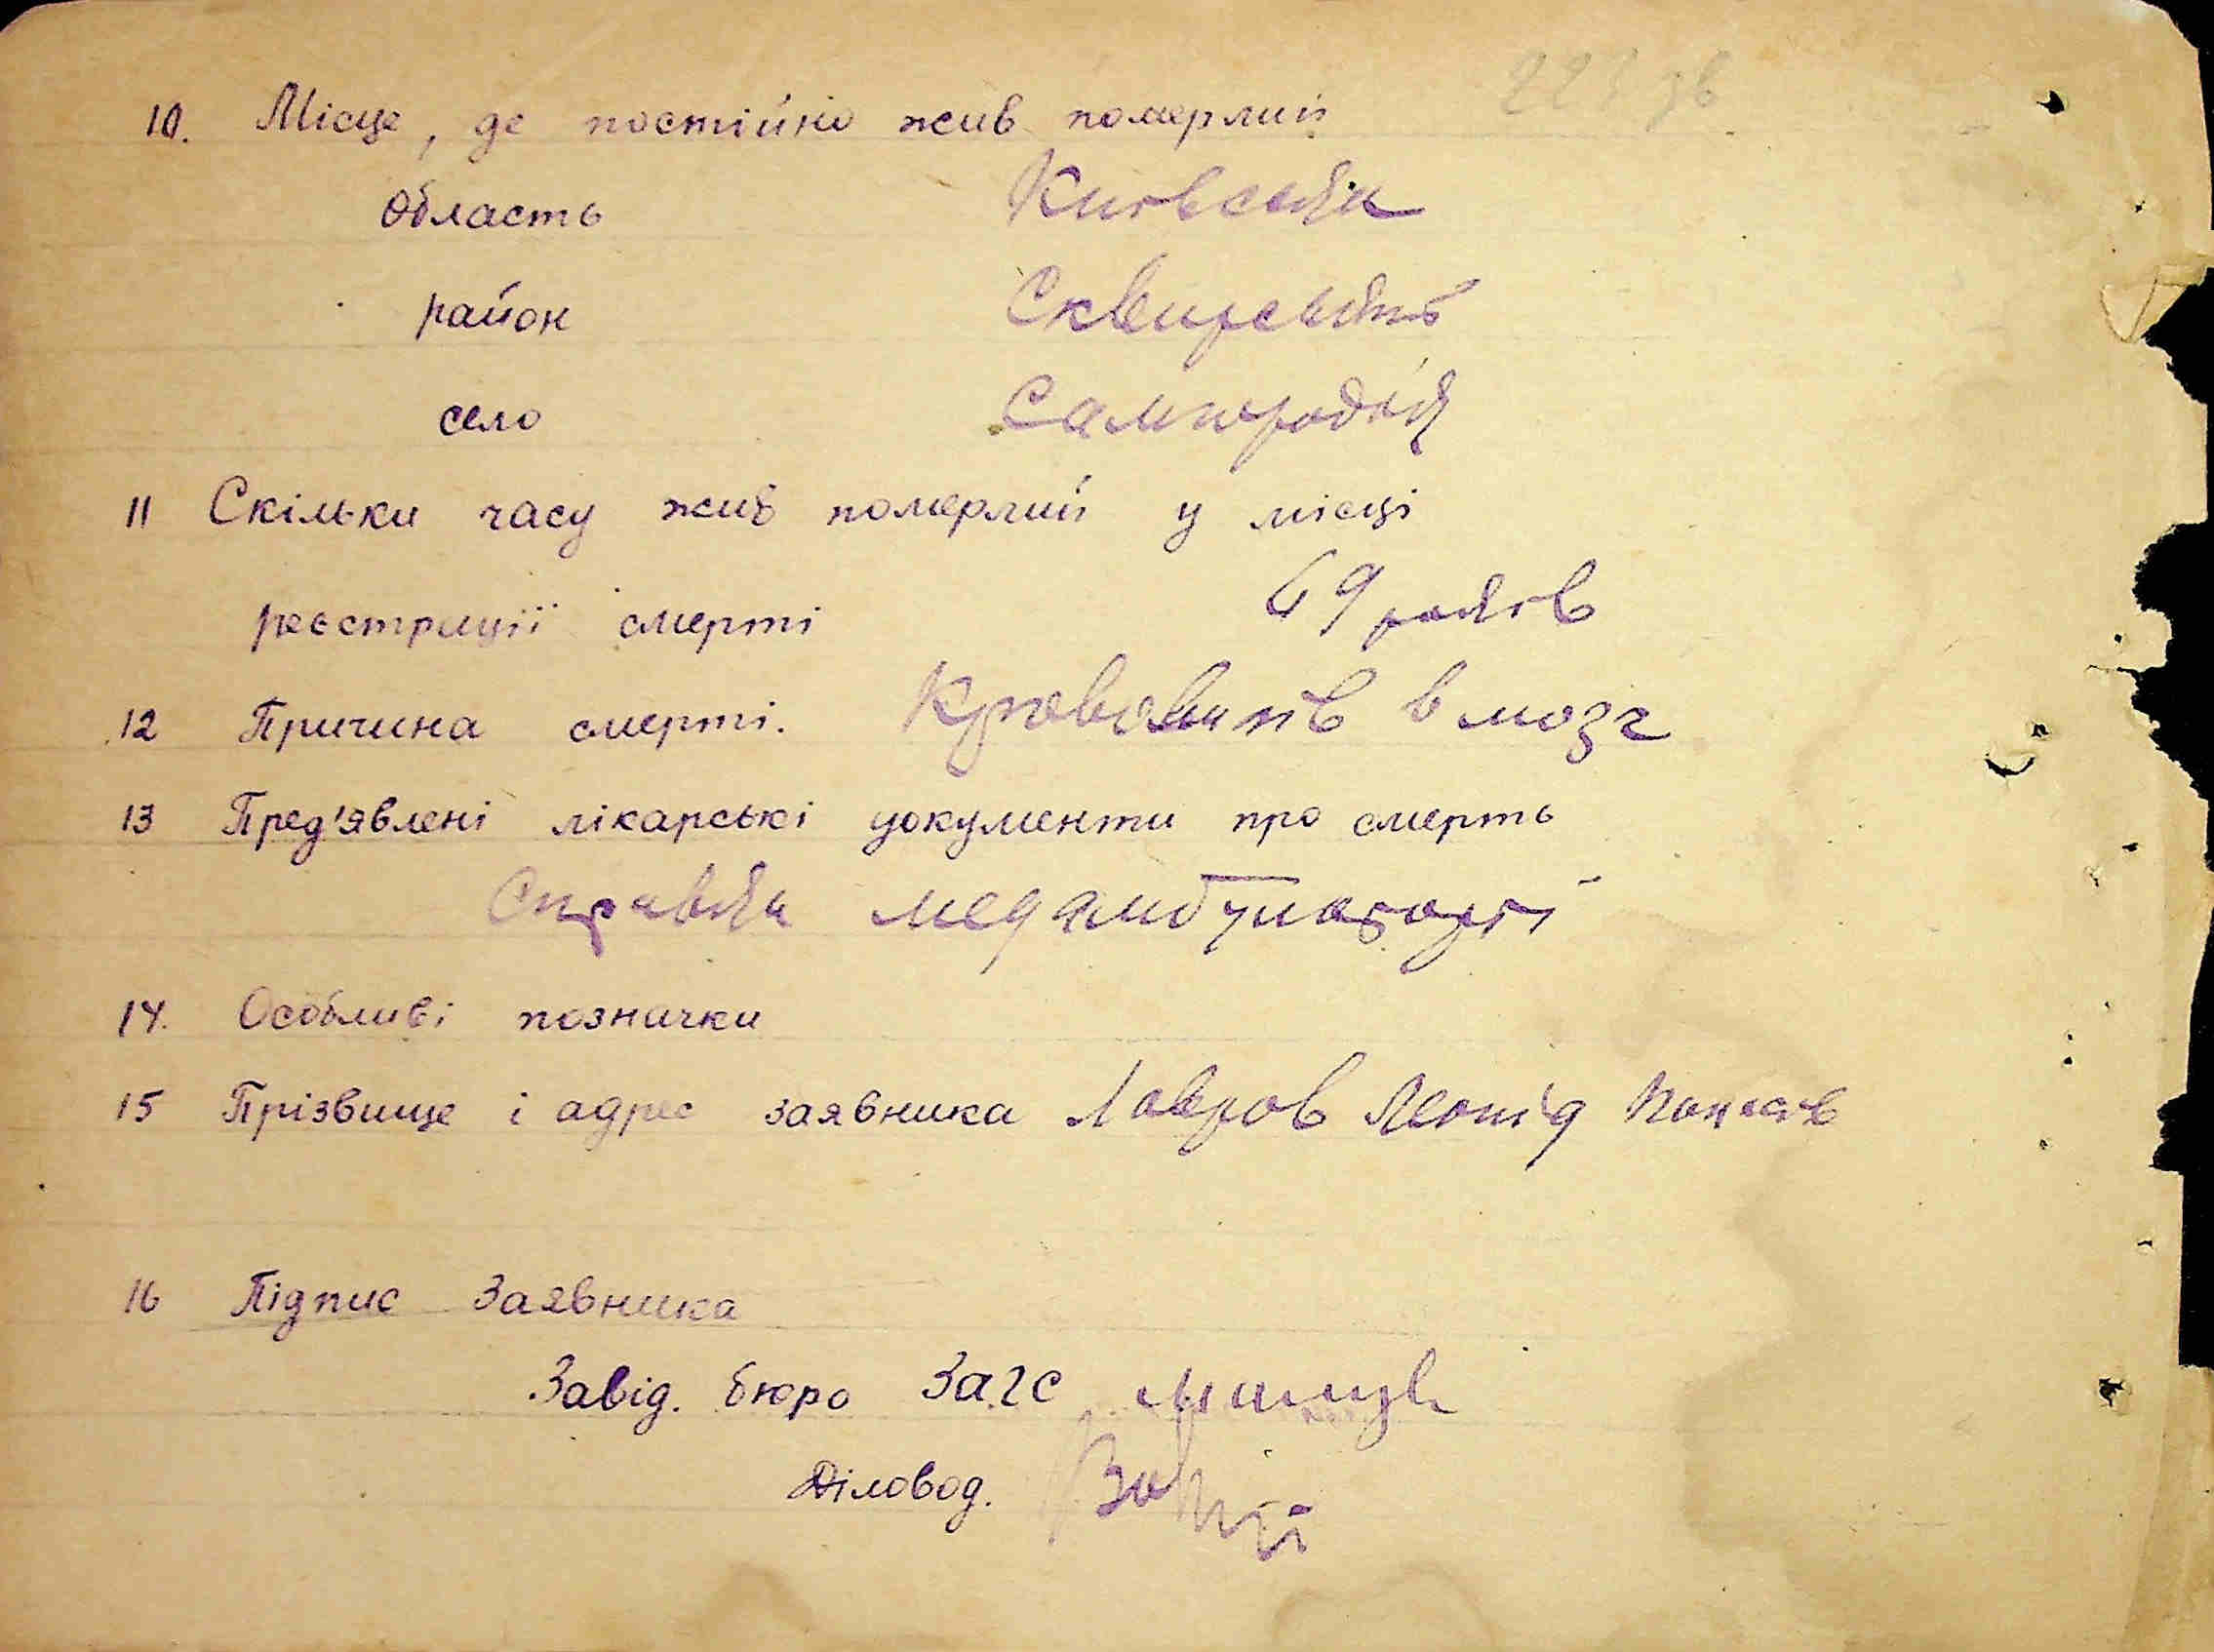 223 зв
10. Місце, де постійно жив померлий
Область Київська
район Сквирський
село Самгородок
11 Скільки часу жив померлий у місці
реєстрації смерті 69 років
12 Причина смерті. в мозг
13 Пред'явлені лікарські документи про смерть
Справка медамбулаторії
14. Особливі позначки
15 Прізвище і адрес заявника Лавров Леонід
16 Підпис Заявника
Завід. бюро Загс
Діловод.